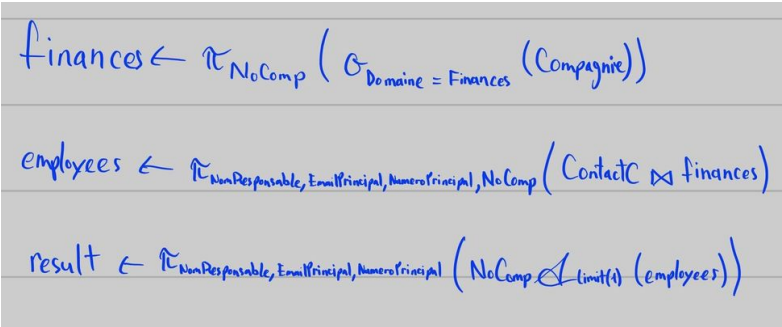 finances ← π NoComp ( σ Domaine = Finances (Compagnie))
employees ← π NomResponsable, EmailPrincipal, NumeroPrincipal, NoComp ( ContactC ⋈ finances)
result ← π NomResponsable, EmailPrincipal, NumeroPrincipal ( NoComp limit(1) (employees))